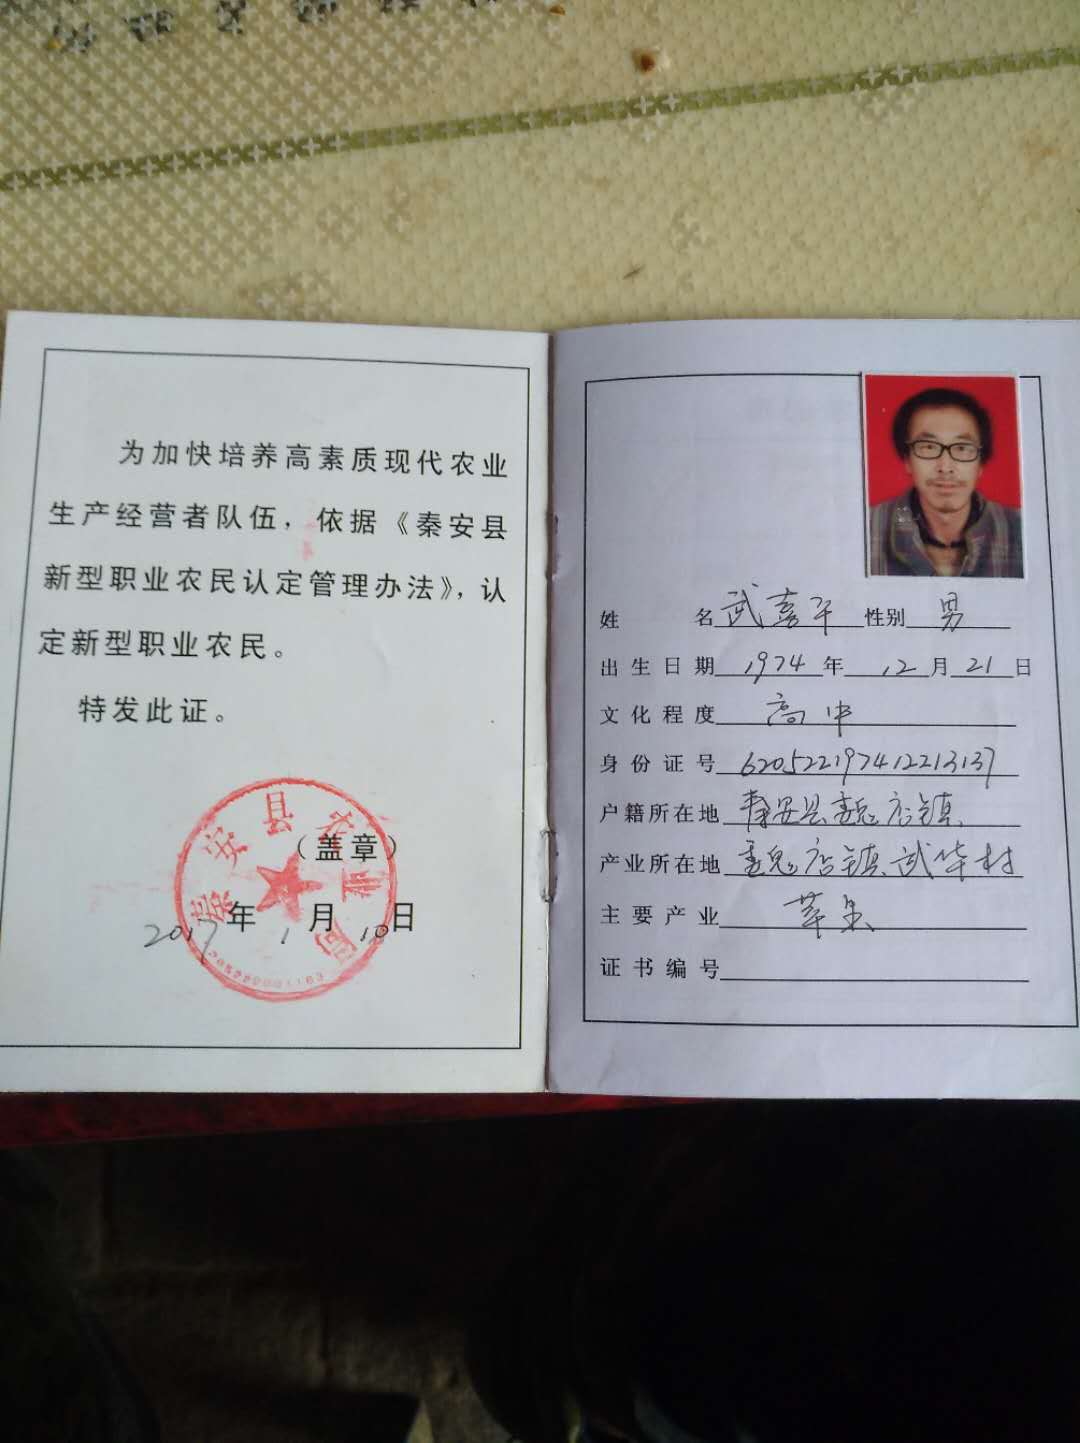 为加快培养高素质现代农业
生产经营者队伍，依据《秦安县
新型职业农民认定管理办法》，认
定新型职业农民。
特发此证。
秦安县农业局
（盖章）
2017年1月10日
姓名 武喜平 性别 男
出生日期 1974年12月21日
文化程度 高中
身份证号 620522197412213137
户籍所在地 秦安县魏店镇
产业所在地 魏店镇武华村
主要产业 苹果
证书编号